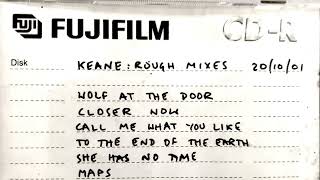 FUJI FUJIFILM CD-R
Disk KEANE: ROUGH MIXES 20/10/01
WOLF AT THE DOOR
CLOSER NOW
CALL ME WHAT YOU LIKE
TO THE END OF THE EARTH
SHE HAS NO TIME
MAPS